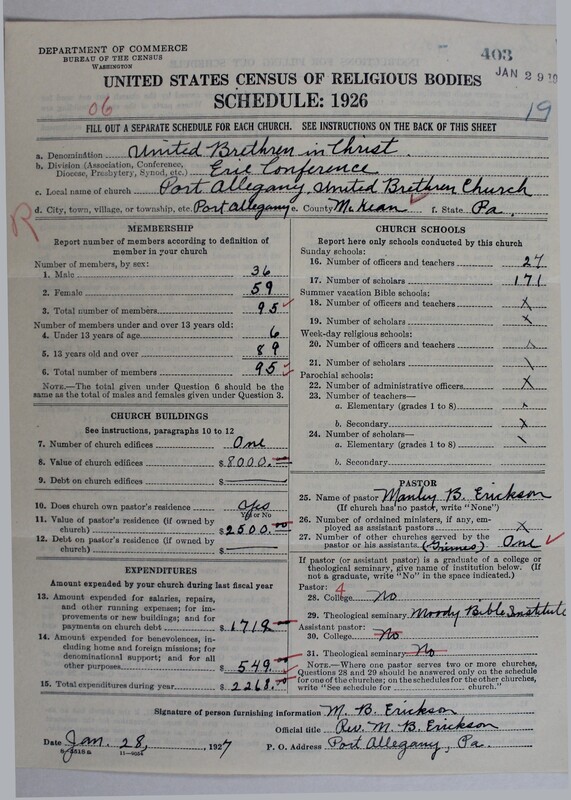 DEPARTMENT OF COMMERCE
BUREAU OF THE CENSUS
WASHINGTON
403
JAN 29 19
UNITED STATES CENSUS OF RELIGIOUS BODIES
SCHEDULE: 1926
06
19
FILL OUT A SEPARATE SCHEDULE FOR EACH CHURCH. SEE INSTRUCTIONS ON THE BACK OF THIS SHEET
a. Denomination United Brethren in Christ
b. Division (Association, Conference, Diocese, Presbytery, Synod, etc.) Erie Conference
c. Local name of church Port Allegany, United Brethren Church
d. City, town, village, or township, etc. Port Allegany e. County McKean f. State Pa.
R
MEMBERSHIP
Report number of members according to definition of
member in your church
Number of members, by sex:
1. Male 36
2. Female 59
3. Total number of members 95
Number of members under and over 13 years old:
4. Under 13 years of age 6
5. 13 years old and over 89
6. Total number of members 95
NOTE.—The total given under Question 6 should be
the same as the total of males and females given under Question 3.
CHURCH BUILDINGS
See instructions, paragraphs 10 to 12
7. Number of church edifices One
8. Value of church edifices $8000.
9. Debt on church edifices $
10. Does church own pastor's residence? Yes
Yes or No
11. Value of pastor's residence (if owned by
church) $2500.00
12. Debt on pastor's residence (if owned by
church) $
EXPENDITURES
Amount expended by your church during last fiscal year
13. Amount expended for salaries, repairs,
and other running expenses; for im-
provements or new buildings; and for
payments on church debt $1719
14. Amount expended for benevolences, in-
cluding home and foreign missions; for
denominational support; and for all
other purposes $549.
15. Total expenditures during year $2268.
CHURCH SCHOOLS
Report here only schools conducted by this church
Sunday schools:
16. Number of officers and teachers 27
17. Number of scholars 171
Summer vacation Bible schools:
18. Number of officers and teachers X
19. Number of scholars X
Week-day religious schools:
20. Number of officers and teachers
21. Number of scholars
Parochial schools:
22. Number of administrative officers X
23. Number of teachers—
a. Elementary (grades 1 to 8) x
b. Secondary x
24. Number of scholars—
a. Elementary (grades 1 to 8)
b. Secondary
PASTOR
25. Name of pastor Manley B. Erickson
(If church has no pastor, write "None")
26. Number of ordained ministers, if any, em-
ployed as assistant pastors X
27. Number of other churches served by the
pastor or his assistants (Grimes) One
If pastor (or assistant pastor) is a graduate of a college or
theological seminary, give name of institution below. (If
not a graduate, write "No" in the space indicated.)
Pastor: 4
28. College No
29. Theological seminary Moody Bible Institute
Assistant pastor:
30. College No
31. Theological seminary No
NOTE.—Where one pastor serves two or more churches,
Questions 28 and 29 should be answered only on the schedule
for one of the churches; on the schedules for the other churches,
write "See schedule for church."
Signature of person furnishing information M. B. Erickson
Official title Rev. M. B. Erickson
Date Jan. 28, 1927 P. O. Address Port Allegany, Pa.
11—9054